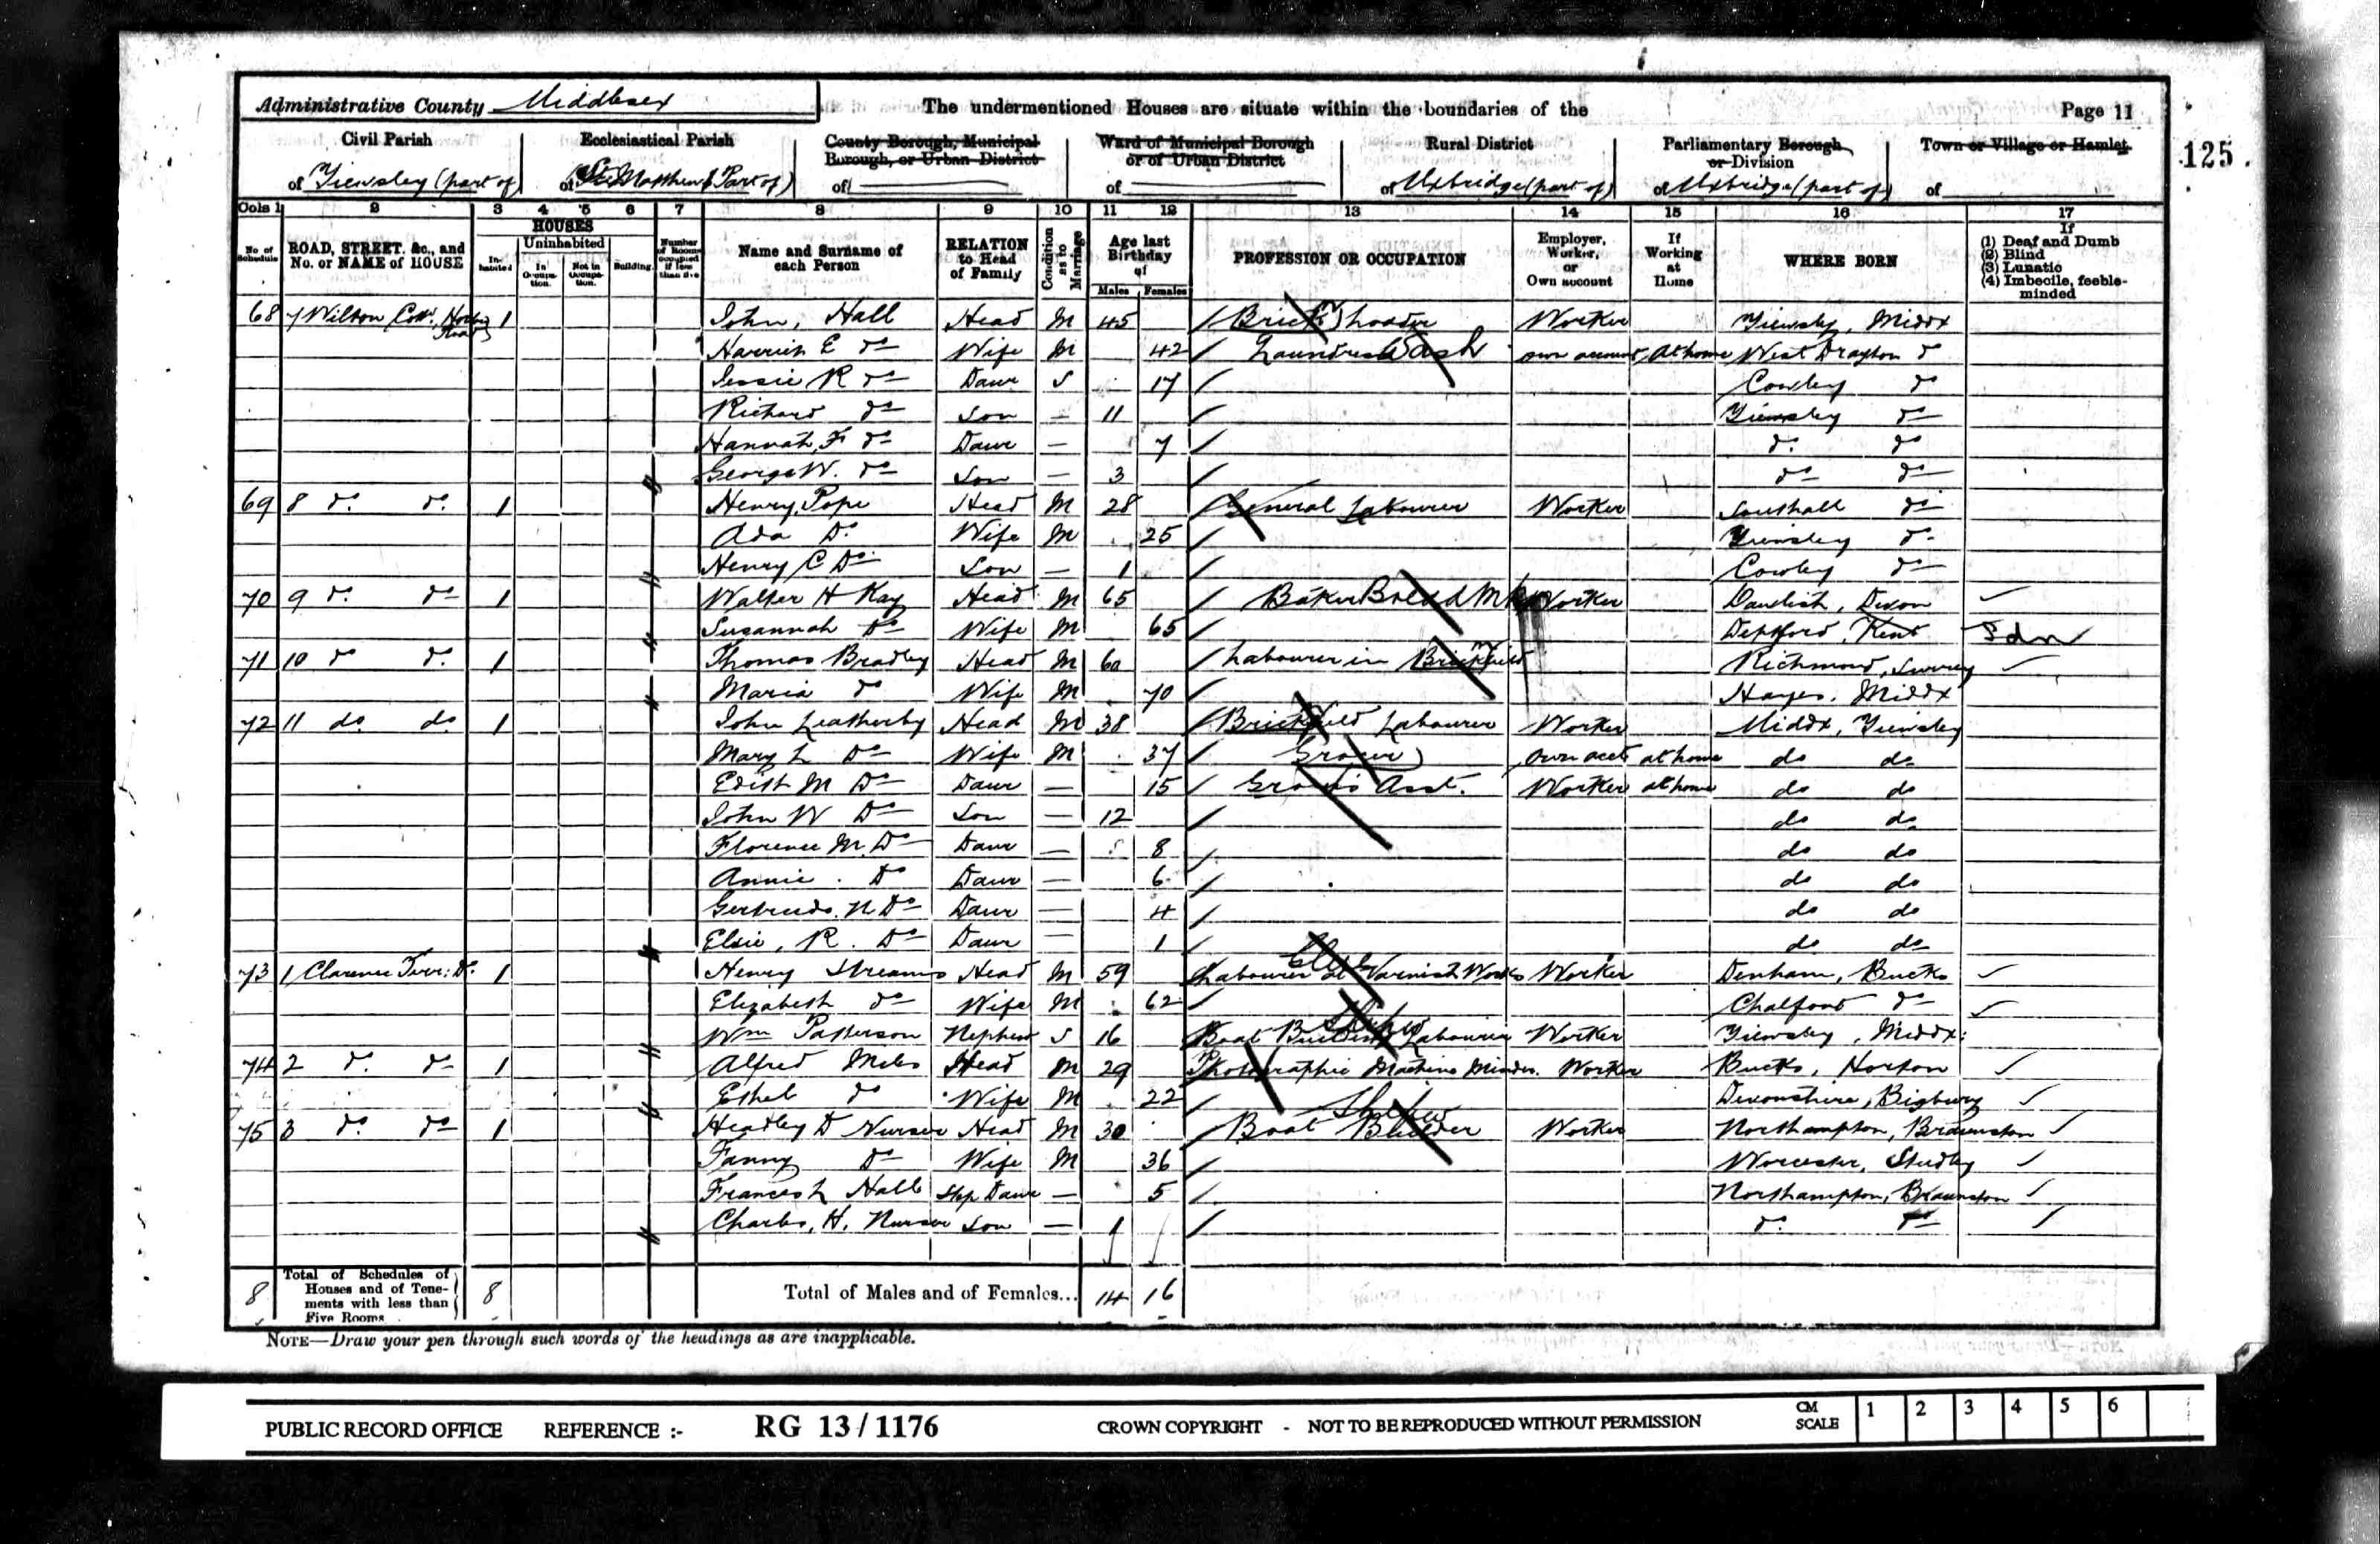 Administrative County Middlesex
The undermentioned Houses are situate within the boundaries of the
Page 11
125
Civil Parish
of Yiewsley (part of)
Ecclesiastical Parish
of St Matthew (Part of)
County Borough, Municipal Borough, or Urban District
of
Ward of Municipal Borough or of Urban District
of
Rural District
of Uxbridge (part of)
Parliamentary Borough or Division
of Uxbridge (part of)
Town or Village or Hamlet
of
Cols 1 2 3 4 5 6 7 8 9 10 11 12 13 14 15 16 17
No of Schedule
ROAD, STREET, &c., and No. or NAME of HOUSE
HOUSES
Inhabited
Uninhabited
In Occupation.
Not in Occupation.
Building.
Number of Rooms occupied if less than five
Name and Surname of each Person
RELATION to Head of Family
Condition as to Marriage
Age last Birthday of
Males Females
PROFESSION OR OCCUPATION
Employer, Worker, or Own account
If Working at Home
WHERE BORN
If (1) Deaf and Dumb (2) Blind (3) Lunatic (4) Imbecile, feeble-minded
68 7 Wilton Cotts, Road 1 John, Hall Head M 45 Brick Loader Worker Yiewsley, Middx
Harriet E do Wife M 42 Laundress Wash own account At home West Drayton do
Jessie R do Daur S 17 Cowley do
Richard do Son — 11 Yiewsley do
Hannah, F do Daur — 7 do do
George W. do Son — 3 do do
69 8 do do 1 Henry, Pope Head M 28 General Labourer Worker Southall do
Ada Do Wife M 25 Yiewsley do
Henry C Do Son — 1 Cowley do
70 9 do do 1 Walter H Kay Head M 65 Baker Bread Mkr Worker Dawlish, Devon
Susannah Do Wife M 65 Deptford, Kent
71 10 do do 1 Thomas Bradley Head M 60 Labourer in Brickfield Richmond, Surrey
Maria do Wife M 70 Hayes, Middx
72 11 do do 1 John Leatherby Head M 38 Brickfield Labourer Worker Middx, Yiewsley
Mary L Do Wife M 37 Grocer own acct at home do do
Edith M Do Daur — 15 Grocer's Asst. Worker at home do do
John W Do Son — 12 do do
Florence M. Do Daur — 8 do do
Annie Do Daur — 6 do do
Gertrude. N Do Daur — 4 do do
Elsie, R. Do Daur — 1 do do
73 1 Clarence Terr: Do 1 Henry Streams Head M 59 Labourer at Varnish Works Worker Denham, Bucks
Elizabeth do Wife M 62 Chalfont do
Wm Patterson Nephew S 16 Boat Building Labourer Worker Yiewsley, Middx:
74 2 do do 1 Alfred Miles Head M 29 Photographic Machine Minder. Worker Bucks, Horton
Ethel do Wife M 22 Devonshire, Bigbury
75 3 do do 1 Headley D Nurser Head M 30 Boat Builder Worker Northampton, Braunston
Fanny Do Wife M 36 Worcester, Studley
Frances L Hall Step Daur — 5 Northampton, Braunston
Charles, H. Nurser Son — 1 do do
8 Total of Schedules of Houses and of Tenements with less than Five Rooms 8 Total of Males and of Females... 14 16
NOTE—Draw your pen through such words of the headings as are inapplicable.
PUBLIC RECORD OFFICE REFERENCE :- RG 13 / 1176 CROWN COPYRIGHT - NOT TO BE REPRODUCED WITHOUT PERMISSION CM SCALE 1 2 3 4 5 6